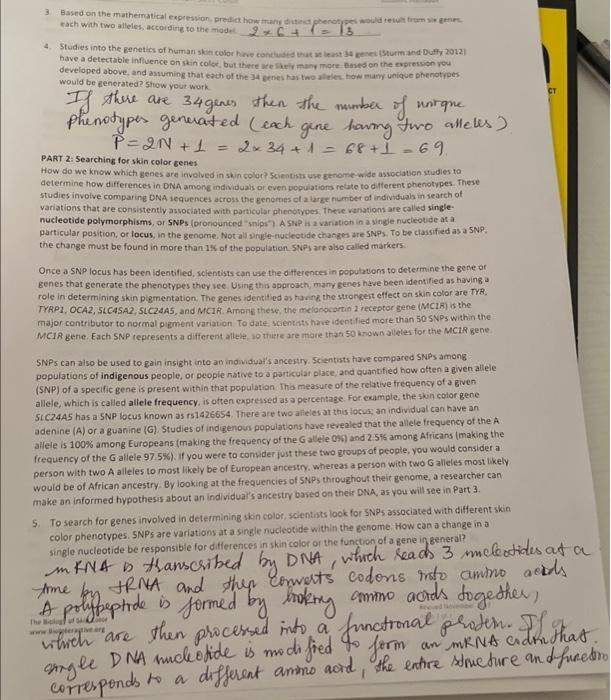 3. Based on the mathematical expression, predict how many distinct phenotypes would result from six genes,
each with two alleles, according to the model. 2 × 6 + 1 = 13
4. Studies into the genetics of human skin color have concluded that at least 34 genes (Sturm and Duffy 2012)
have a detectable influence on skin color, but there are likely many more. Based on the expression you
developed above, and assuming that each of the 34 genes has two alleles, how many unique phenotypes
would be generated? Show your work.
If there are 34 genes then the number of unique
phenotypes generated (each gene having two alleles)
P = 2N + 1 = 2 × 34 + 1 = 68 + 1 = 69.
CT
PART 2: Searching for skin color genes
How do we know which genes are involved in skin color? Scientists use genome-wide association studies to
determine how differences in DNA among individuals or even populations relate to different phenotypes. These
studies involve comparing DNA sequences across the genomes of a large number of individuals in search of
variations that are consistently associated with particular phenotypes. These variations are called single-
nucleotide polymorphisms, or SNPs (pronounced "snips"). A SNP is a variation in a single nucleotide at a
particular position, or locus, in the genome. Not all single-nucleotide changes are SNPs. To be classified as a SNP,
the change must be found in more than 1% of the population. SNPs are also called markers.
Once a SNP locus has been identified, scientists can use the differences in populations to determine the gene or
genes that generate the phenotypes they see. Using this approach, many genes have been identified as having a
role in determining skin pigmentation. The genes identified as having the strongest effect on skin color are TYR,
TYRP1, OCA2, SLC45A2, SLC24A5, and MC1R. Among these, the melanocortin 1 receptor gene (MC1R) is the
major contributor to normal pigment variation. To date, scientists have identified more than 50 SNPs within the
MC1R gene. Each SNP represents a different allele, so there are more than 50 known alleles for the MC1R gene.
SNPs can also be used to gain insight into an individual's ancestry. Scientists have compared SNPs among
populations of indigenous people, or people native to a particular place, and quantified how often a given allele
(SNP) of a specific gene is present within that population. This measure of the relative frequency of a given
allele, which is called allele frequency, is often expressed as a percentage. For example, the skin color gene
SLC24A5 has a SNP locus known as rs1426654. There are two alleles at this locus; an individual can have an
adenine (A) or a guanine (G). Studies of indigenous populations have revealed that the allele frequency of the A
allele is 100% among Europeans (making the frequency of the G allele 0%) and 2.5% among Africans (making the
frequency of the G allele 97.5%). If you were to consider just these two groups of people, you would consider a
person with two A alleles to most likely be of European ancestry, whereas a person with two G alleles most likely
would be of African ancestry. By looking at the frequencies of SNPs throughout their genome, a researcher can
make an informed hypothesis about an individual's ancestry based on their DNA, as you will see in Part 3.
5. To search for genes involved in determining skin color, scientists look for SNPs associated with different skin
color phenotypes. SNPs are variations at a single nucleotide within the genome. How can a change in a
single nucleotide be responsible for differences in skin color or the function of a gene in general?
mRNA is transcribed by DNA, which reads 3 nucleotides at a
time by tRNA and then converts codons into amino acids
A polypeptide is formed by linking amino acids together,
The Biology of
www.
which are then processed into a functional protein. If a
single DNA nucleotide is modified to form an mRNA codon that
corresponds to a different amino acid, the entire structure and function